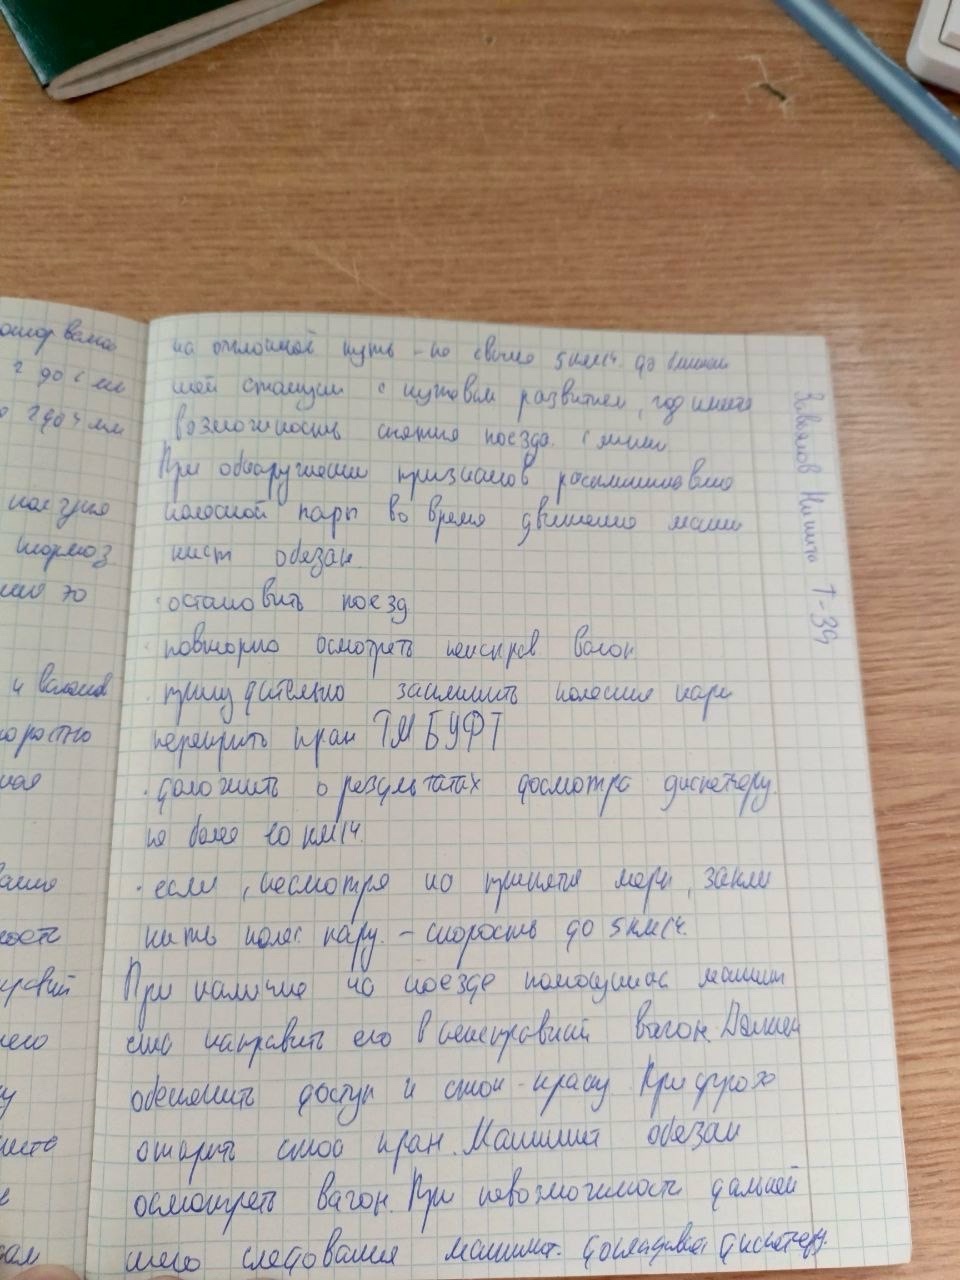 на отклоной путь - по 5 км/ч. до ближай
шей станции с путевым развитием, год имеея
возможность снятия поезда с линии
При обнаружении признаков расклинивание
колесной пары во время движение маши
нист обязан
· остановить поезд
· повторно осмотреть неисправ вагон
· принудительно заклинить колесние пары
перекрить кран ТМ БУФТ
· доложить о результатах досмотра диспетчеру
не более 10 км/ч.
· если, несмотря на принятя меры, закли
нить колес. пару. - скорость до 5 км/ч.
При наличие на поезде помощника машин
иста направить его в неисправний вагон. Должен
обеспечить доступ к стоп-крану При
открить стоп кран. Машинист обязан
осмотреть вагон. При невозможности дальней
шего следования машинист. докладывает диспетчеру.
Завьялов Никита Т-39
2 до
2 до 4 мм
поезда
тормоз
и вагонов